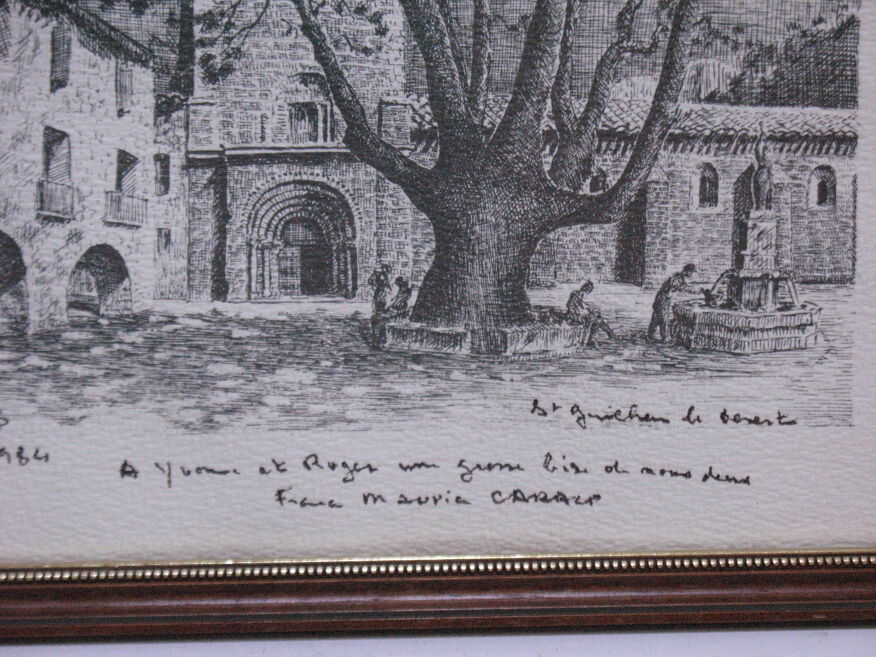 St Guilhem le Desert
1984
A Yvonne et Roger une grosse bise de nous deux
Maurice CARALP